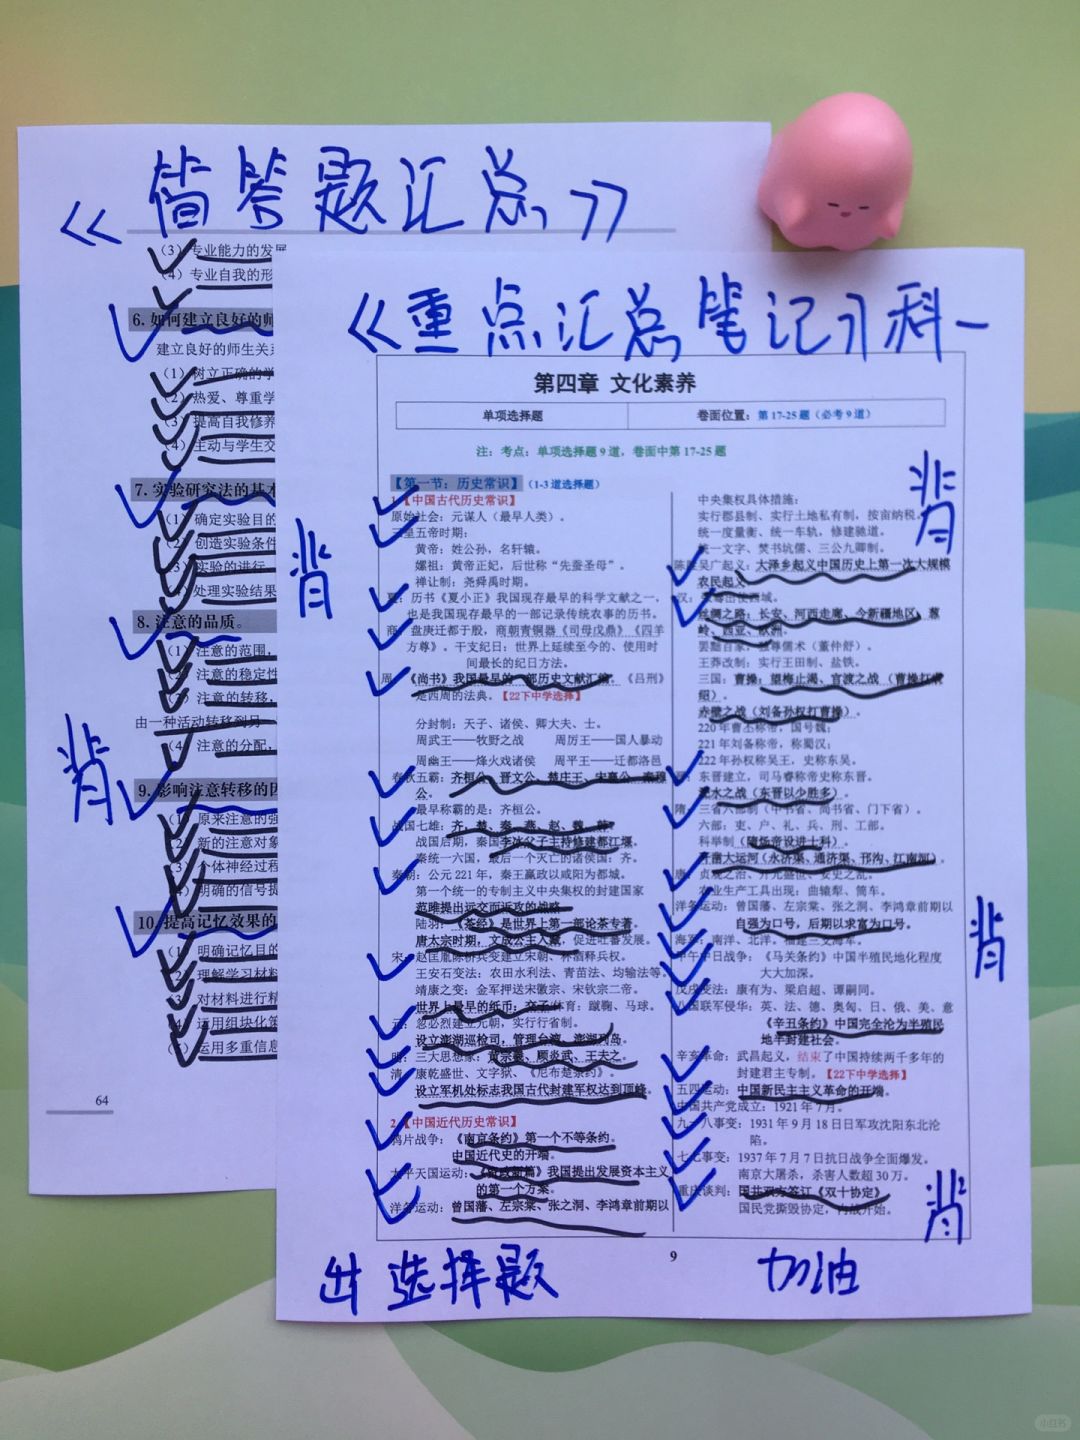 《简答题汇总》
（3）专业能力的发展
（4）专业自我的形
6. 如何建立良好的师
建立良好的师生关系
（1）树立正确的学
（2）热爱、尊重学
（3）提高自我修养
（4）主动与学生交
7. 实验研究法的基本
（1）确定实验目的
（2）创造实验条件
（3）实验的进行
（4）处理实验结果
8. 注意的品质。
（1）注意的范围，
（2）注意的稳定性
（3）注意的转移，
由一种活动转移到另一
（4）注意的分配，
9. 影响注意转移的因
（1）原来注意的强
（2）新的注意对象
（3）个体神经过程
（4）明确的信号提
10. 提高记忆效果的
（1）明确记忆目的
（2）理解学习材料
（3）对材料进行精
（4）运用组块化策
（5）运用多重信息
64
背
背
《重点汇总笔记》科一
第四章 文化素养
单项选择题
卷面位置：第 17-25 题（必考 9 道）
注：考点：单项选择题 9 道，卷面中第 17-25 题
【第一节：历史常识】（1-3 道选择题）
1.【中国古代历史常识】
原始社会：元谋人（最早人类）。
三皇五帝时期：
黄帝：姓公孙，名轩辕。
嫘祖：黄帝正妃，后世称“先蚕圣母”。
禅让制：尧舜禹时期。
夏：历书《夏小正》我国现存最早的科学文献之一，
也是我国现存最早的一部记录传统农事的历书。
商：盘庚迁都于殷，商朝青铜器《司母戊鼎》《四羊
方尊》。干支纪日：世界上延续至今的、使用时
间最长的纪日方法。
周：《尚书》我国最早的一部历史文献汇编，《吕刑》
是西周的法典。【22下中学选择】
分封制：天子、诸侯、卿大夫、士。
周武王——牧野之战 周厉王——国人暴动
周幽王——烽火戏诸侯 周平王——迁都洛邑
春秋五霸：齐桓公、晋文公、楚庄王、宋襄公、秦穆
公。
最早称霸的是：齐桓公。
战国七雄：齐、楚、秦、燕、赵、魏、韩。
战国后期，秦国李冰父子主持修建都江堰。
秦统一六国，最后一个灭亡的诸侯国：齐。
秦朝：公元 221 年，秦王嬴政以咸阳为都城。
第一个统一的专制主义中央集权的封建国家
范雎提出远交而近攻的战略
陆羽：《茶经》是世界上第一部论茶专著。
唐太宗时期，文成公主入藏，促进吐蕃发展。
宋：赵匡胤陈桥兵变建立宋朝、杯酒释兵权。
王安石变法：农田水利法、青苗法、均输法等。
靖康之变：金军押送宋徽宗、宋钦宗二帝。
世界上最早的纸币：交子 体育：蹴鞠、马球。
元：忽必烈建立元朝，实行行省制。
设立澎湖巡检司，管理台湾、澎湖列岛。
明：三大思想家：黄宗羲、顾炎武、王夫之。
清：康乾盛世、文字狱、《尼布楚条约》。
设立军机处标志我国古代封建军权达到顶峰。
2.【中国近代历史常识】
鸦片战争：《南京条约》第一个不等条约。
中国近代史的开端。
太平天国运动：《资政新篇》我国提出发展资本主义
的第一个方案。
洋务运动：曾国藩、左宗棠、张之洞、李鸿章前期以
中央集权具体措施：
实行郡县制、实行土地私有制，按亩纳税。
统一度量衡、统一车轨，修建驰道。
统一文字、焚书坑儒、三公九卿制。
陈胜吴广起义：大泽乡起义中国历史上第一次大规模
农民起义。
汉：张骞出使西域。
丝绸之路：长安、河西走廊、今新疆地区、葱
岭、西亚、欧洲。
罢黜百家，独尊儒术（董仲舒）。
王莽改制：实行王田制、盐铁。
三国：曹操：望梅止渴、官渡之战（曹操打袁
绍）。
赤壁之战（刘备孙权打曹操）。
220 年曹丕称帝，国号魏；
221 年刘备称帝，称蜀汉；
222 年孙权称吴王，史称东吴。
晋：东晋建立，司马睿称帝史称东晋。
淝水之战（东晋以少胜多）。
隋：三省六部制（中书省、尚书省、门下省）。
六部：吏、户、礼、兵、刑、工部。
科举制（隋炀帝设进士科）。
开凿大运河（永济渠、通济渠、邗沟、江南河）。
唐：贞观之治、开元盛世、安史之乱。
农业生产工具出现：曲辕犁、筒车。
洋务运动：曾国藩、左宗棠、张之洞、李鸿章前期以
自强为口号，后期以求富为口号。
海军：南洋、北洋、福建三支海军。
甲午中日战争：《马关条约》中国半殖民地化程度
大大加深。
戊戌变法：康有为、梁启超、谭嗣同。
八国联军侵华：英、法、德、奥匈、日、俄、美、意
《辛丑条约》中国完全沦为半殖民
地半封建社会。
辛亥革命：武昌起义，结束了中国持续两千多年的
封建君主专制。【22下中学选择】
五四运动：中国新民主主义革命的开端。
中国共产党成立：1921 年 7 月。
九一八事变：1931 年 9 月 18 日日军攻沈阳东北沦
陷。
七七事变：1937 年 7 月 7 日抗日战争全面爆发。
南京大屠杀，杀害人数超 30 万。
重庆谈判：国共双方签订《双十协定》
国民党撕毁协定，内战开始。
背
背
背
9
出选择题
加油
小红书